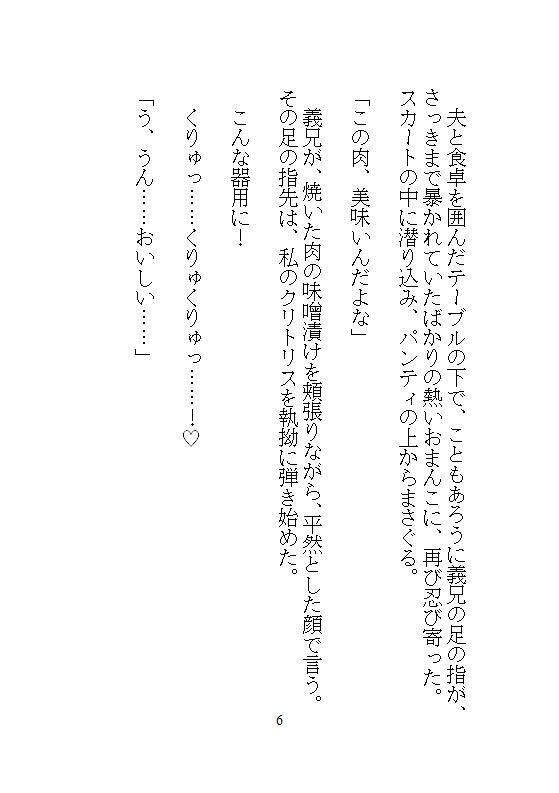 夫と食卓を囲んだテーブルの下で、こともあろうに義兄の足の指が、
さっきまで暴かれていたばかりの熱いおまんこに、再び忍び寄った。
スカートの中に潜り込み、パンティの上からまさぐる。
「この肉、美味いんだよな」
義兄が、焼いた肉の味噌漬けを頬張りながら、平然とした顔で言う。
その足の指先は、私のクリトリスを執拗に弾き始めた。
こんな器用に！
くりゅっ……くりゅくりゅっ……！♡
「う、うん……おいしい……」
6